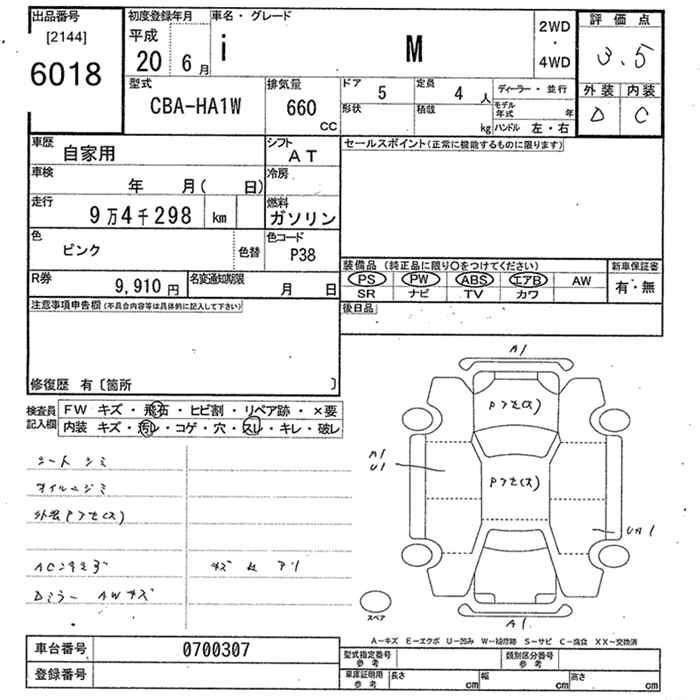 出品番号 初度登録年月 車名・グレード 2WD ・ 4WD 評価点
[2144] 平成
6018 20 6月 i M 3.5
型式 排気量 ドア 定員 ディーラー・並行 外装 内装
CBA-HA1W 660 CC 5 4人 モデル年式 年 D C
形状 積載 kg ハンドル 左・右
車歴 自家用 シフト AT セールスポイント(正常に機能するものに限ります)
車検 年 月( 日) 冷房
走行 9万4千298 km 燃料 ガソリン
色 ピンク 色替 色コード P38
装備品 (純正品に限り○をつけてください) 新車保証書
R券 9,910円 名変通知期限 月 日 PS PW ABS エアB AW 有・無
SR ナビ TV カワ
注意事項申告欄(不具合内容等は具体的に記入して下さい) 後日品
修復歴 有〔箇所 〕
検査員記入欄 FW キズ・飛石・ヒビ割・リペア跡・×要
内装 キズ・汚レ・コゲ・穴・スレ・キレ・破レ
A1
シートシミ
A1
U1
外装
キズ
Dミラー AWキズ
UA1
スペア
A1
A-キズ E-エクボ U-凹み W-補修跡 S-サビ C-腐食 XX-交換済
車台番号 0700307 型式指定番号 参考 類別区分番号 参考
登録番号 車庫証明用 参考 長さ cm 幅 cm 高さ cm